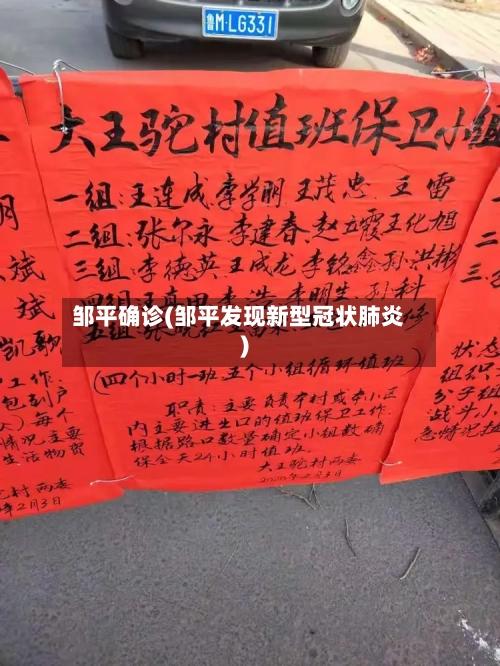 鲁M·LG331
大王驼村值班保卫小组
一组:王连成 李学明 王茂忠 王雷
二组:张尔永 李建春 赵立霞 王化旭
三组:李德英 王成龙 李铭鑫 孙洪彬
邹平确诊(邹平发现新型冠状肺炎
)
(四个小时一班 五个小组循环值班)
职责:主要负责本村或本小区
内主要进出口的值班保卫工作.
根据路口数量确定小组数确
保全天24小时值班.
大王驼村两委
2020年2月3日
明
斌
斌
凯歌
工作:
包到户
人)每个
情况.主要
生活物资
驼村两委
年2月3日
二
三
状态
组织
分子组
战斗小
急情况